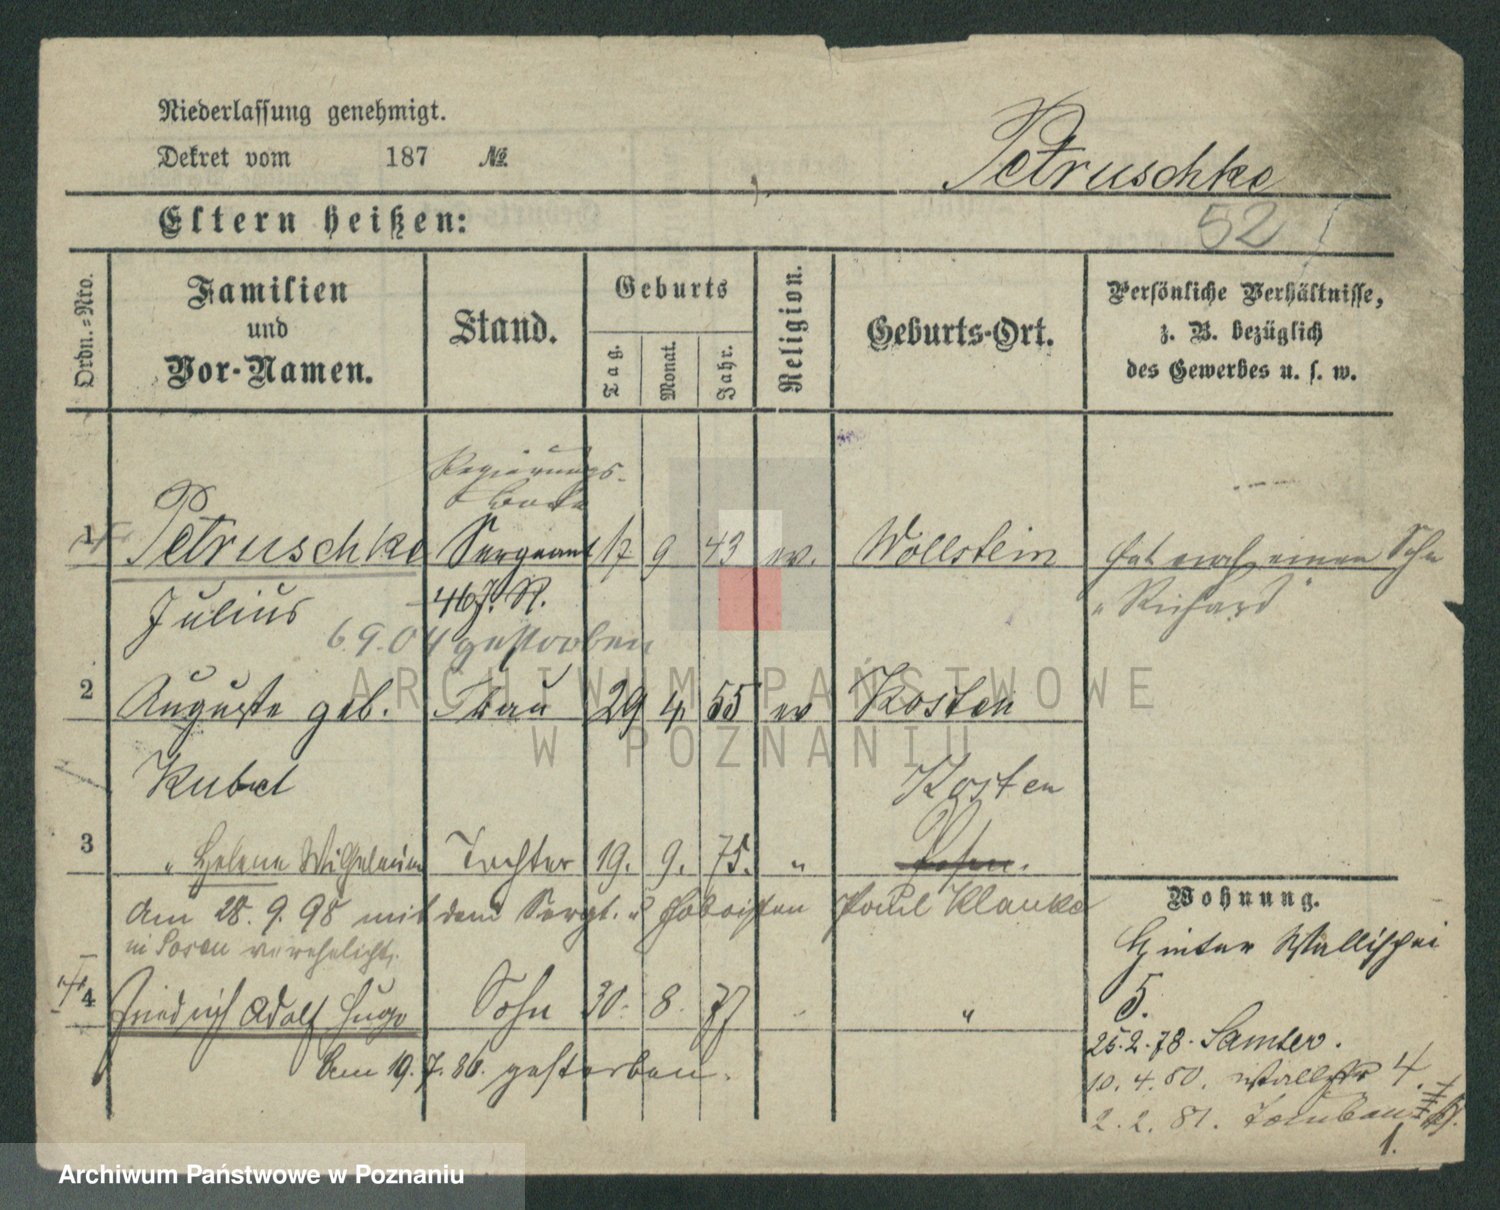 Niederlassung genehmigt.
Dekret vom 187 №
Petruschke
Eltern heißen:
52
Ordn.=Nro.
Familien
und
Vor-Namen.
Stand.
Geburts
Tag.
Monat.
Jahr.
Religion.
Geburts-Ort.
Persönliche Verhältnisse,
z. B. bezüglich
des Gewerbes u. s. w.
Regierungs-
bote
1 Petruschke Sergeant 17 9 43 ev. Wollstein hat noch einen Sohn
Julius 46 J. R. "Richard"
6.9.04 gestorben
2 Auguste geb. Frau 29 4 55 ev Kosten
Kubet Kosten
3 " Helene Wilhelmine Tochter 19. 9. 75. " Posen.
Am 28.9.98 mit dem Sergt. u Hoboisten Paul Klauke
in Posen verehelicht.
4 Friedrich Adolf Hugo Sohn 30. 8. 77 "
Am 19.7.80. gestorben.
Wohnung.
Hinter Wallischei
5.
25.2.78. Samter.
10.4.80. 4.
2.2.81.
1.
ARCHIWUM PAŃSTWOWE
W POZNANIU
Archiwum Państwowe w Poznaniu